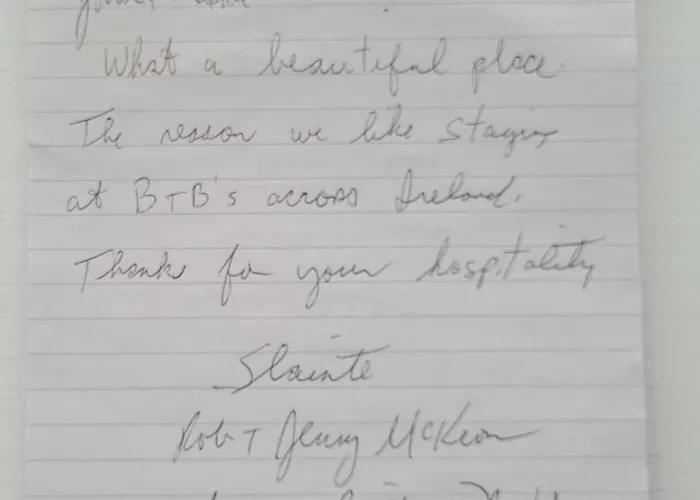 What a beautiful place.
The reason we like staying
at B+B's across Ireland.
Thanks for your hospitality
Slainte
Rob + Jenny McKeon